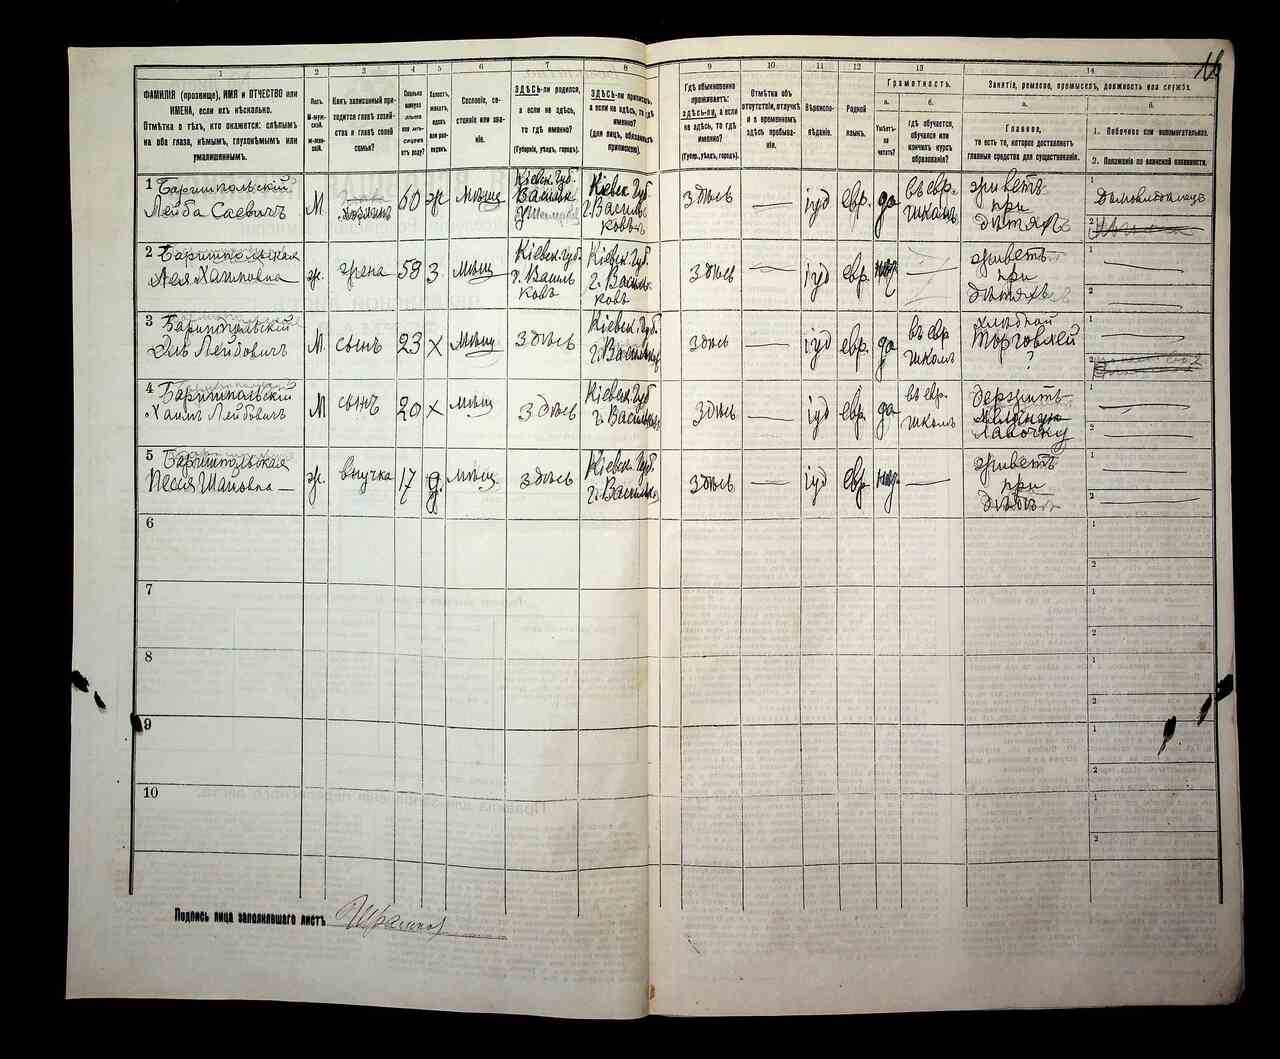 16
1 2 3 4 5 6 7 8 9 10 11 12 13 14
ФАМИЛІЯ (прозвище), ИМЯ и ОТЧЕСТВО или
ИМЕНА, если ихъ нѣсколько.
Отмѣтка о тѣхъ, кто окажется: слѣпымъ
на оба глаза, нѣмымъ, глухонѣмымъ или
умалишеннымъ.
Полъ.
М-муж-
ской.
Ж-жен-
скій.
Какъ записанный при-
ходится главѣ хозяй-
ства и главѣ своей
семьи?
Сколько
минуло
лѣтъ
отъ роду?
Холостъ,
женатъ,
вдовъ
или раз-
веденъ.
Сословіе, со-
стояніе или зва-
ніе.
ЗДѢСЬ-ли родился,
а если не здѣсь,
то гдѣ именно?
(Губернія, уѣздъ, городъ).
ЗДѢСЬ-ли приписанъ,
а если не здѣсь, то гдѣ
именно?
(Для лицъ, обязанныхъ
припискою).
Гдѣ обыкновенно
проживаетъ:
здѣсь-ли, а если
не здѣсь, то гдѣ
именно?
(Губер., уѣздъ, городъ).
Отмѣтка объ
отсутствіи, отлучкѣ
и о временномъ
здѣсь пребыва-
ніи.
Вѣроиспо-
вѣданіе.
Родной
языкъ.
Грамотность.
а.
Умѣетъ-
ли
читать?
б.
гдѣ обучается,
обучался или
кончилъ курсъ
образованія?
Занятіе, ремесло, промыселъ, должность или служба.
а.
Главное,
то есть то, которое доставляетъ
главныя средства для существованія.
б.
1. Побочное или вспомогательное.
2. Положеніе по воинской повинности.
1 Баришпольскій
Лейба Саевичъ
М
60
ж
мѣщ
Кіевск. Губ.
Васильк
Кіевск. Губ.
г. Василь
ковъ
здѣсь
—
іуд
евр.
да
въ евр.
школѣ
живетъ
при
дѣтяхъ
1
2
2 Баришпольская
Лея Хаимовна
ж.
жена
58
з
мѣщ
Кіевск. Губ.
г. Василь
ковъ
Кіевск. Губ.
г. Василь
ковъ
здѣсь
—
іуд
евр.
—
живетъ
при
дѣтяхъ
1 —
2 —
3 Баришпольскій
Лейбовичъ
М.
сынъ
23
х
мѣщ
здѣсь
Кіевск. Губ.
г. Васильковъ
здѣсь
—
іуд
евр.
да
въ евр
школѣ
хлѣбной
торговлей
?
1 —
2
4 Баришпольскій
Хаимъ Лейбовичъ
М
сынъ
20
х
мѣщ
здѣсь
Кіевск. Губ
г. Васильков
здѣсь
—
іуд
евр.
да
въ евр.
школѣ
держитъ
лавочку
1 —
2 —
5 Баришпольская
Песся Шаповна —
ж.
внучка
17
д.
мѣщ
здѣсь
Кіевск. Губ.
г. Васильков
здѣсь
—
іуд
евр
—
живетъ
при
1 —
2 —
6
1
2
7
1
2
8
1
2
9
1
2
10
1
2
Подпись лица заполнявшаго листъ